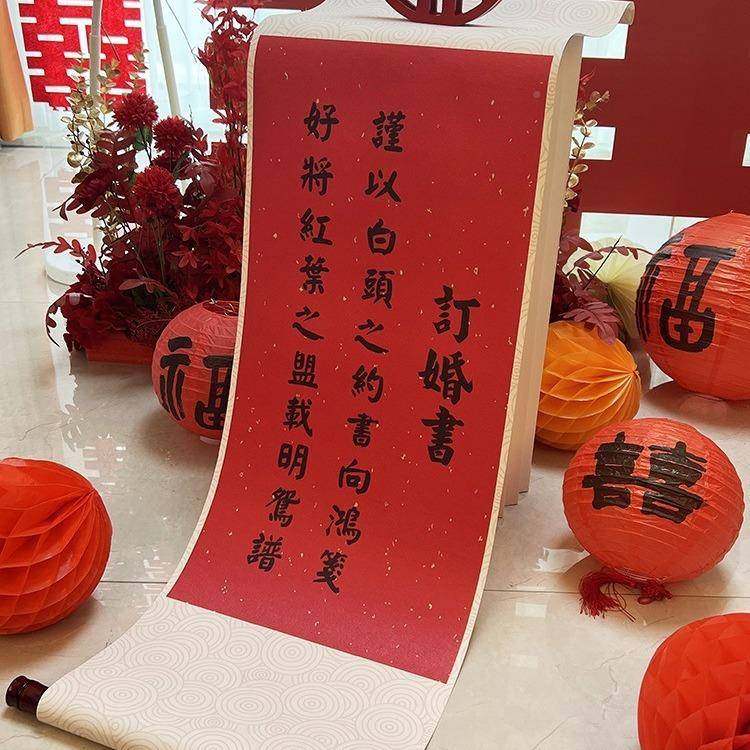 訂婚書
謹以白頭之約書向鴻箋
好將紅葉之盟載明鴛譜
福
福
囍
囍